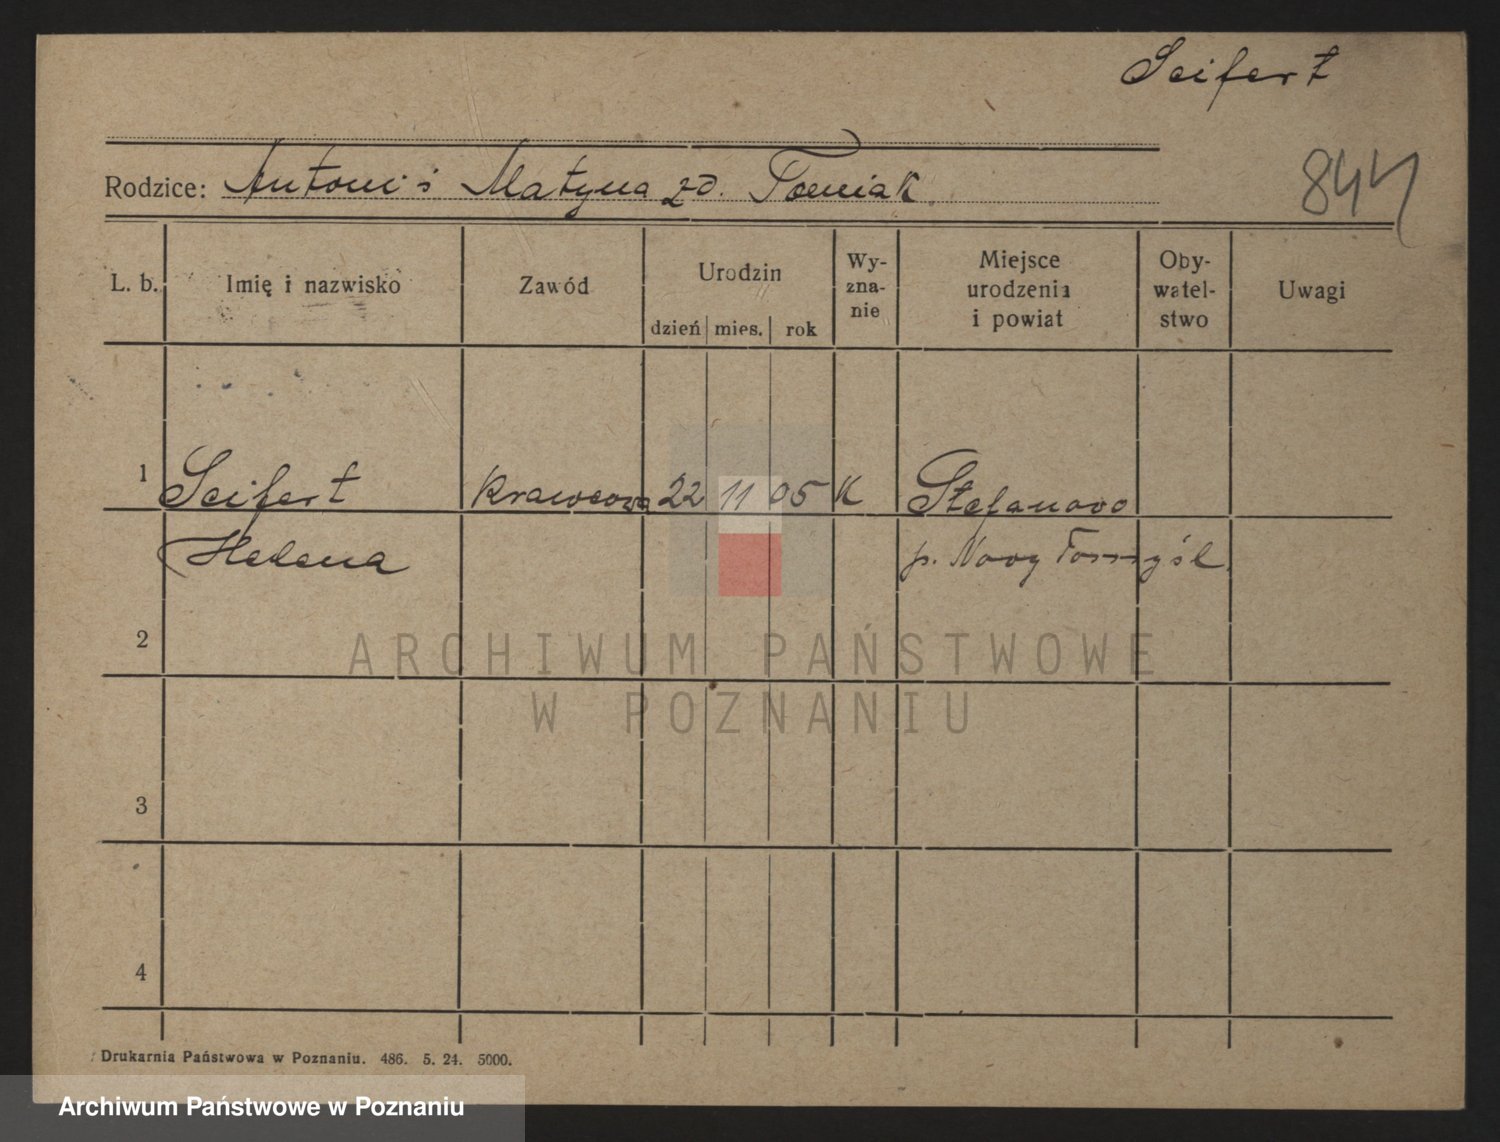 Seifert
844
Rodzice: Antoni i Matyna zd. Tomiak
L. b. Imię i nazwisko Zawód Urodzin dzień mies. rok Wy-zna-nie Miejsce urodzenia i powiat Oby-watel-stwo Uwagi
1 Seifert Krawcowa 22 11 05 K Stefanowo
Helena p. Nowy Tomyśl
2
3
4
ARCHIWUM PAŃSTWOWE
W POZNANIU
Drukarnia Państwowa w Poznaniu. 486. 5. 24. 5000.
Archiwum Państwowe w Poznaniu